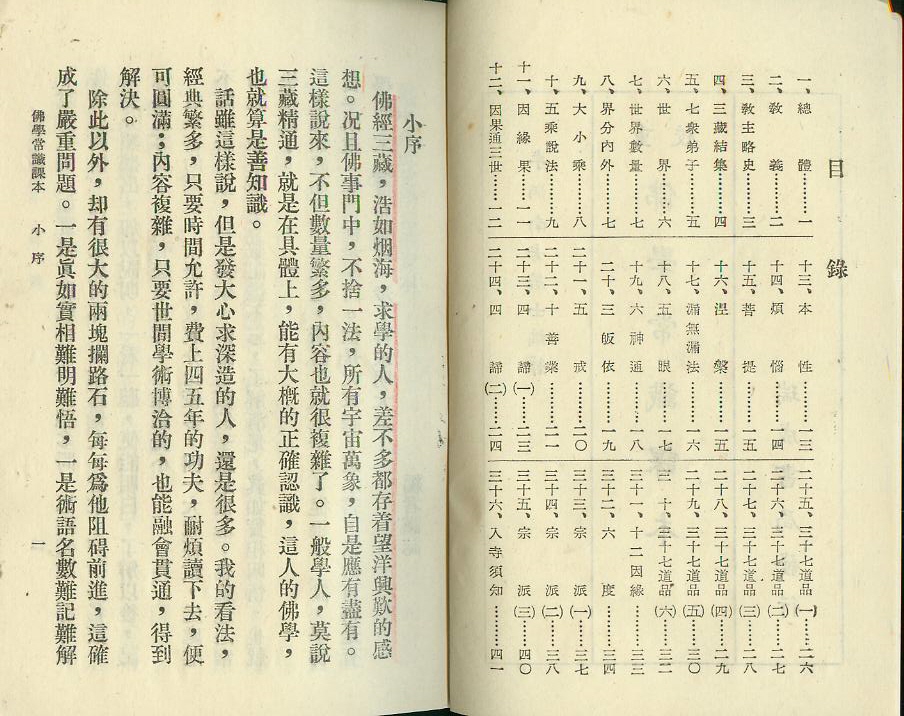 目錄
一、總體………一
二、教義………二
三、教主略史………三
四、三藏結集………四
五、七衆弟子………五
六、世界………六
七、世界數量………七
八、界分內外………七
九、大小乘………八
十、五乘說法………九
十一、因緣果………一一
十二、因果通三世………一二
十三、本性………一三
十四、煩惱………一四
十五、菩提………一五
十六、涅槃………一五
十七、漏無漏法………一六
十八、五眼………一七
十九、六神通………一八
二十、三皈依………一九
二十一、五戒………二〇
二十二、十善業………二一
二十三、四諦(一)………二三
二十四、四諦(二)………二四
二十五、三十七道品(一)………二六
二十六、三十七道品(二)………二七
二十七、三十七道品(三)………二八
二十八、三十七道品(四)………二九
二十九、三十七道品(五)………三〇
三十、三十七道品(六)………三二
三十一、十二因緣………三三
三十二、六度………三四
三十三、宗派(一)………三七
三十四、宗派(二)………三八
三十五、宗派(三)………四〇
三十六、入寺須知………四一
小序
佛經三藏，浩如烟海，求學的人，差不多都存着望洋興歎的感
想。况且佛事門中，不捨一法，所有宇宙萬象，自是應有盡有。
這樣說來，不但數量繁多，內容也就很複雜了。一般學人，莫說
三藏精通，就是在具體上，能有大槪的正確認識，這人的佛學，
也就算是善知識。
話雖這樣說，但是發大心求深造的人，還是很多。我的看法，
經典繁多，只要時間允許，費上四五年的功夫，耐煩讀下去，便
可圓滿；內容複雜，只要世間學術博洽的，也能融會貫通，得到
解決。
除此以外，却有很大的兩塊攔路石，每每爲他阻碍前進，這確
成了嚴重問題。一是眞如實相難明難悟，一是術語名數難記難解
佛學常識課本　小序　一